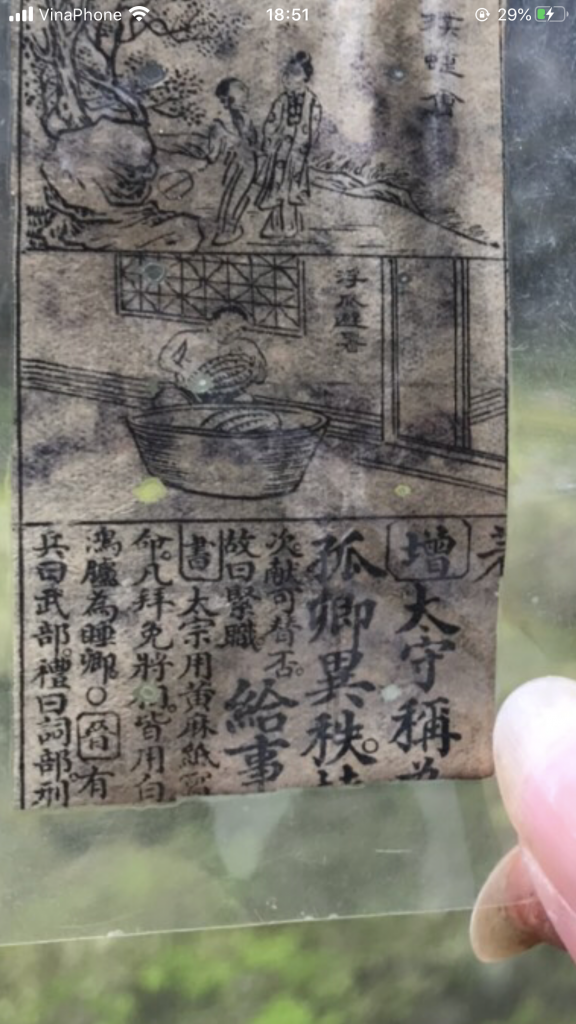 VinaPhone
18:51
29%
撲蝶會
浮瓜避暑
增
太守稱
孤卿異秩
給事
次。獻可替否。
故曰緊職
書 太宗用黃麻紙寫
命。凡拜免將相。皆用白
鴻臚為睡卿。○ 有
兵曰武部。禮曰祠部。刑